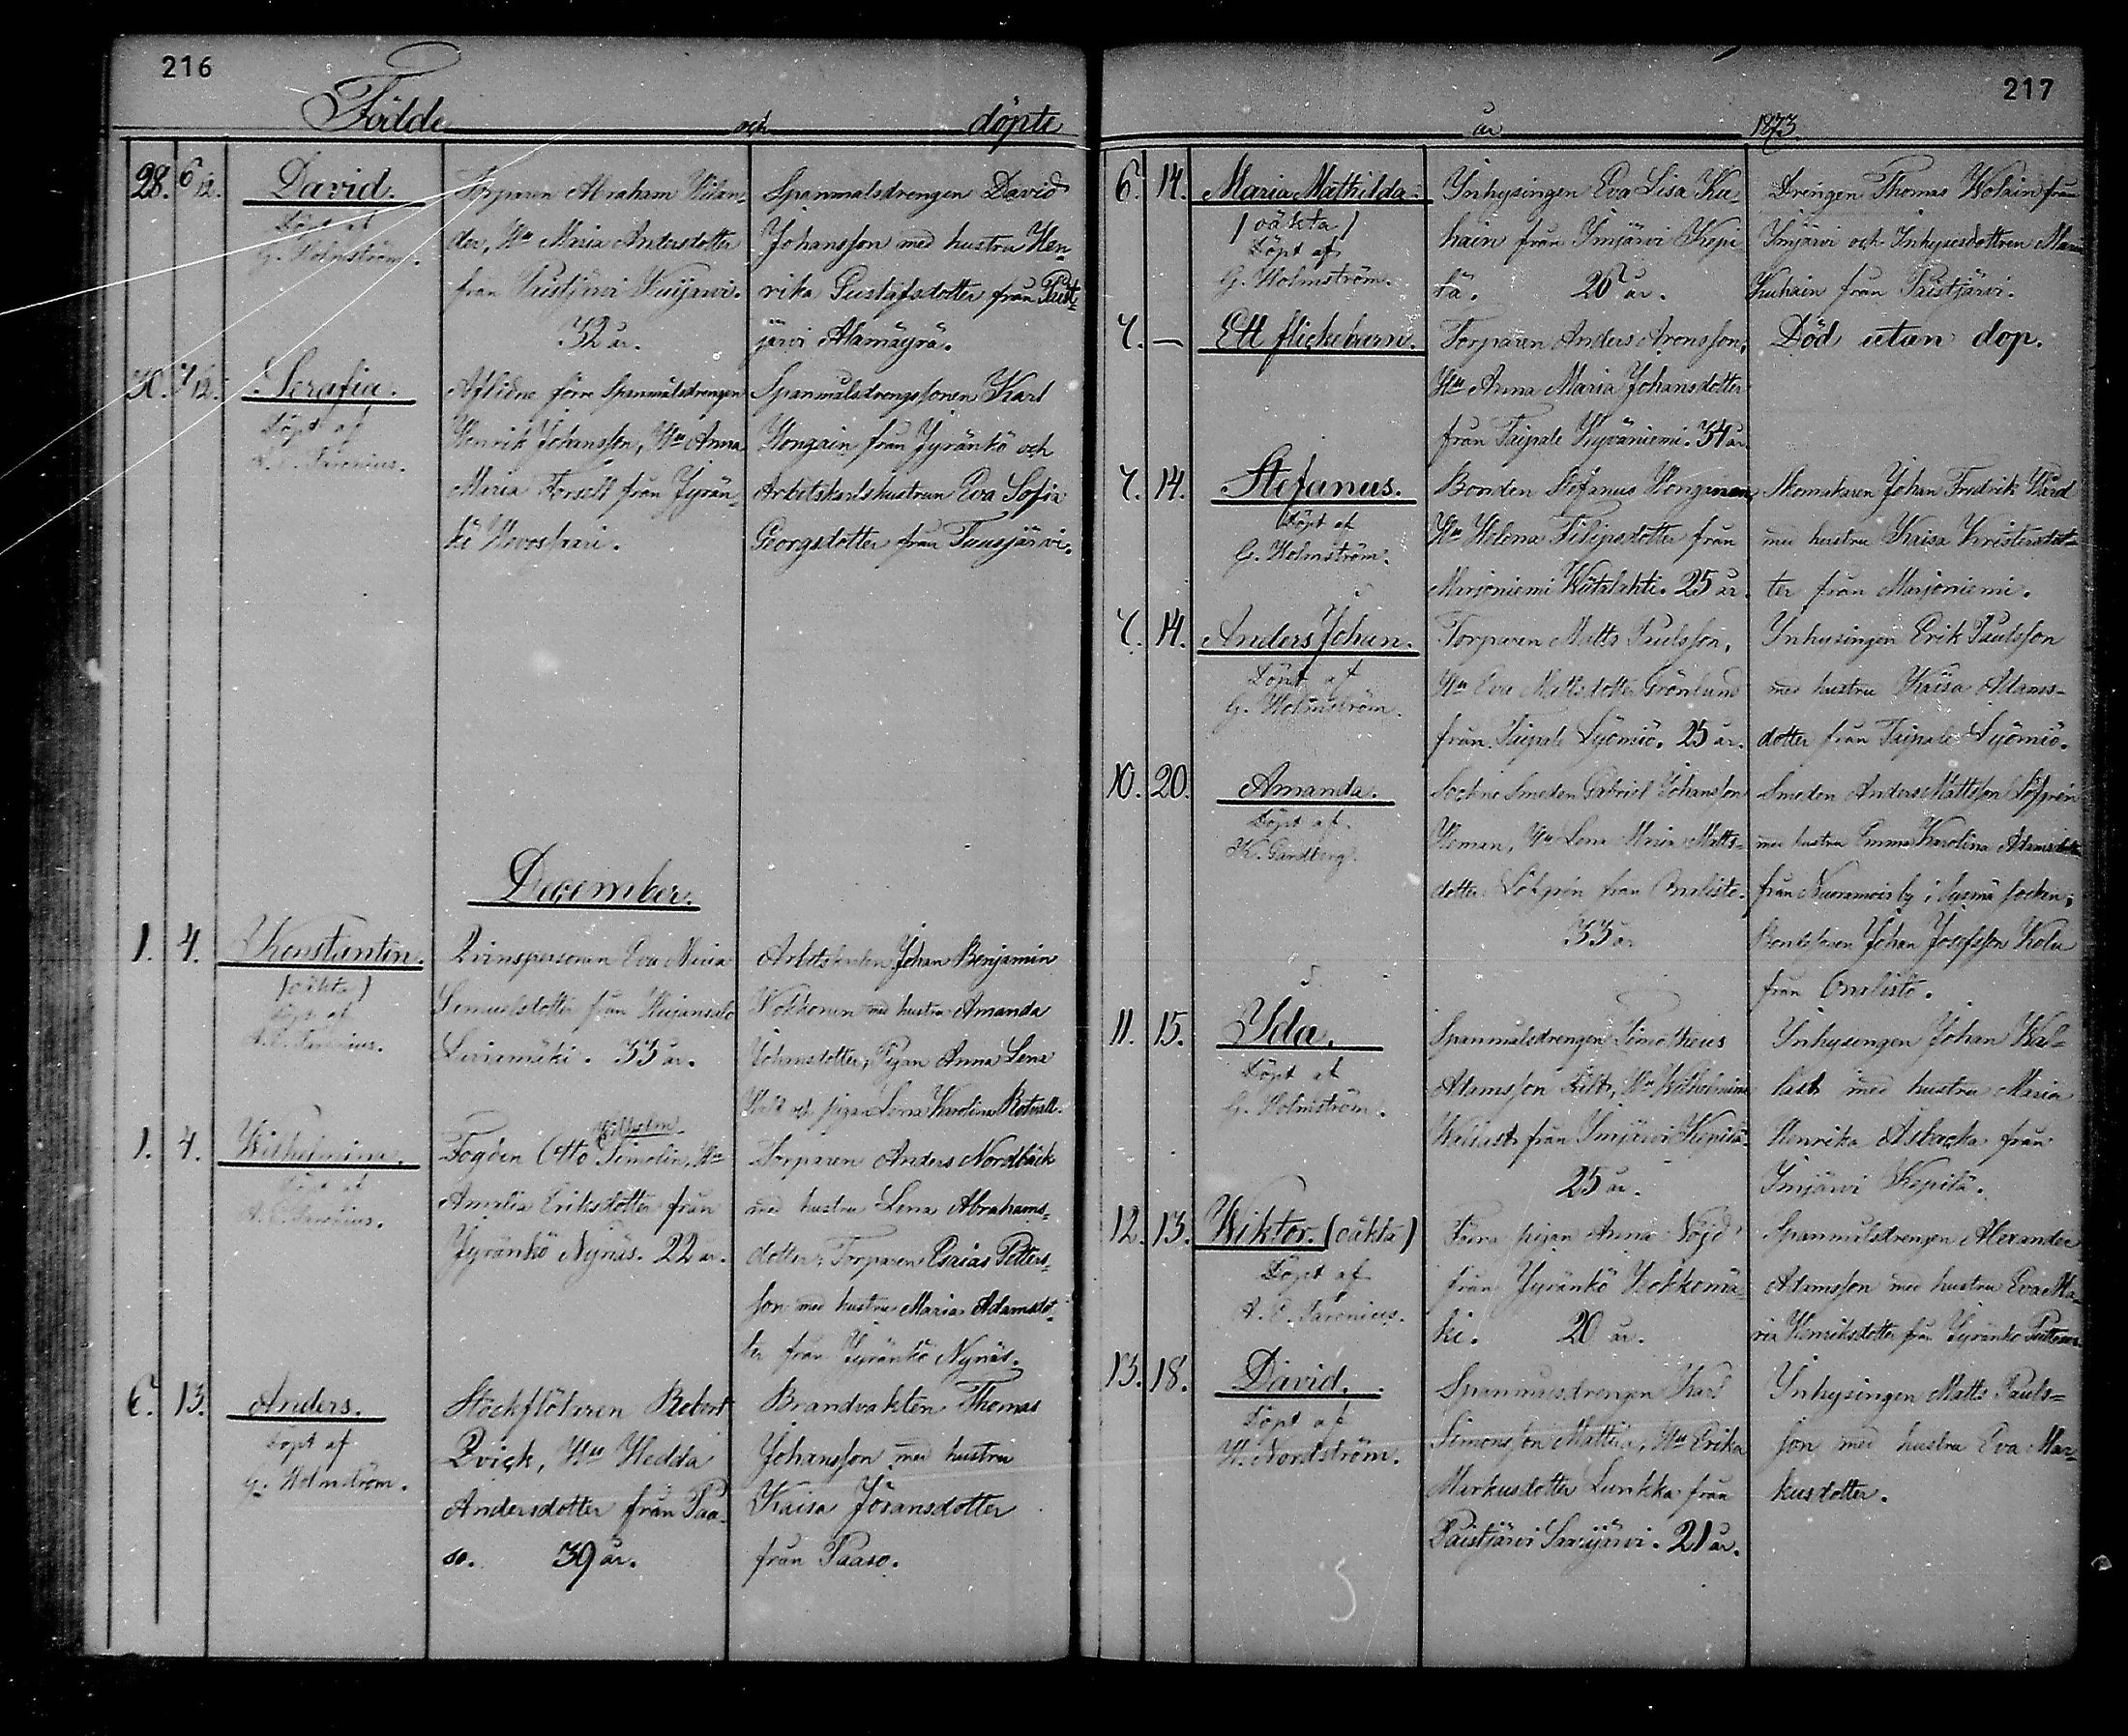 216
Födde och döpte
28. 6/12. David.
Döpt af
G. Holmström.
Torparen Abraham Wilan-
der, Hu Maria Andersdotter
från Paistjärvi Kuijärvi.
32 år.
Spanmålsdrengen David
Johansson med hustru Hen-
rika Gustafsdotter från Paist-
järvi Alamäyrä.
30. 7/12. Serafia.
Döpt af
A. E. Faronius.
Aflidne förre Spanmålsdrengen
Henrik Johansson, Hu Anna
Maria Forsell från Jyrän-
kö
Spanmålsdrengssonen Karl
Kongain från Jyränkö och
Arbetskarlshustrun Eva Sofia
Georgsdotter från Tuusjärvi.
December.
1. 4. Konstantin.
(oäkta)
Döpt af
A. E. Faronius.
Qvinspersonen Eva Maria
Samuelsdotter från
33 år.
Arbetskarlen Johan Benjamin
Kokkonen med hustru Amanda
Johansdotter, Pigan Anna Lena
och pigan Lena Karolina Rotvall.
1. 4. Wilhelmina.
Döpt af
A. E. Faronius.
Wilhelm
Fogden Otto Simolin, Hu
Amalia Eriksdotter från
Jyränkö Nynäs. 22 år.
Torparen Anders Nordbäck
med hustru Lena Abrahams-
dotter; Torparen Esaias Petters-
son med hustru Maria Adamsdot-
ter från Jyränkö Nynäs.
6. 13. Anders.
Döpt af
G. Holmström.
Stockflötaren Robert
Qvick, Hu Hedda
Andersdotter från Paa-
so. 39 år.
Brandvakten Thomas
Johansson med hustru
Kaisa Jöransdotter
från Paaso.
217
år 1873
6. 14. Maria Mathilda.
(oäkta)
Döpt af
G. Holmström.
Inhysingen Eva Lisa Ku-
hain från Imjärvi Kepi-
lä. 26 år.
Drengen Thomas Wolain från
Imjärvi och Inhysesdottren Maria
Kuhain från Paistjärvi.
7. — Ett flickebarn.
Torparen Anders Aronsson,
Hu Anna Maria Johansdotter
från Taipale Hyväniemi. 34 år.
Död utan dop.
7. 14. Stefanus.
Döpt af
G. Holmström.
Bonden Stefanus Kongainen,
Hu Helena Filipsdotter från
Marjoniemi Wätalahti. 25 år.
Skomakaren Johan Fredrik Wård
med hustru Kaisa Kristersdot-
ter från Marjoniemi.
7. 14. Anders Johan.
Döpt af
G. Holmström.
Torparen Matts Paulsson,
Hu Eva Mattsdotter Grönlund
från Taipale Lyömiö. 25 år.
Inhysingen Erik Paulsson
med hustru Kaisa Adams-
dotter från Taipale Lyömiö.
10. 20. Amanda.
Döpt af
K. Gardberg.
Sockne Smeden Gabriel Johansson
Heman, Hu Lena Maria Matts-
dotter Löfgrén från Onalisto.
33 år
Smeden Anders Mattsson Löfgrén
med hustru Emma Karolina Adamsdotter
från Nuoramois by i Sysmä socken;
Bondsonen Johan Josefsson Kolu
från Onalisto.
11. 15. Ida.
Döpt af
G. Holmström.
Spanmålsdrengen Timotheus
Adamsson Filt, Hu Wilhelmina
Wallast från Imjärvi Kepilä
25 år.
Inhysingen Johan Wal-
last med hustru Maria
Henrika Åsbacka från
Imjärvi Kepilä.
12. 13. Wiktor. (oäkta)
Döpt af
A. E. Faronius.
Förra pigan Anna Nöjd
från Jyränkö Kokkomä-
ki. 20 år.
Spanmålsdrengen Alexander
Adamsson med hustru Eva Ma-
ria Henriksdotter från Jyränkö
13. 18. David.
Döpt af
W. Nordström.
Spanmålsdrengen Karl
Simonsson Mattila, Hu Erika
Markusdotter Lunkka från
Paistjärvi Savijärvi. 21 år.
Inhysingen Matts Pauls-
son med hustru Eva Mar-
kusdotter.